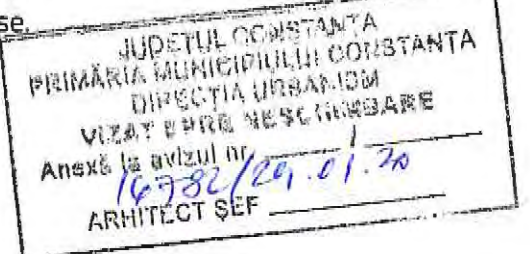 se.
JUDEŢUL CONSTANŢA
PRIMĂRIA MUNICIPIULUI CONSTANTA
DIRECŢIA URBANISM
VIZAT SPRE NESCHIMBARE
Anexă la avizul nr.
14782/29.01.20
ARHITECT ŞEF